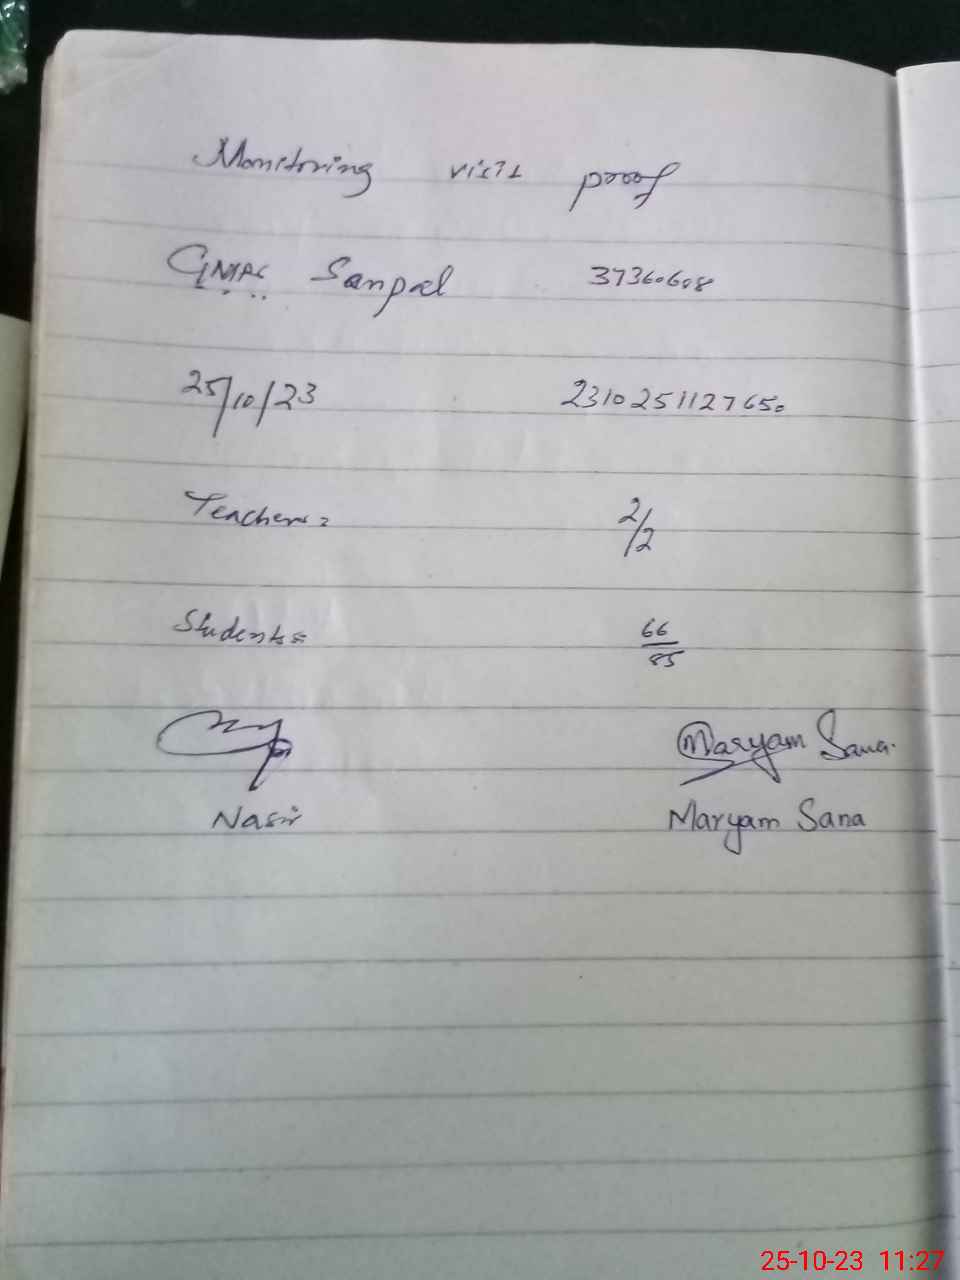 Monitoring visit proof
GMPS Sanpal 37360608
25/10/23 2310251127650
Teachers = 2/2
Students = 66/85
Maryam Sana
Nasir Maryam Sana
25-10-23 11:27